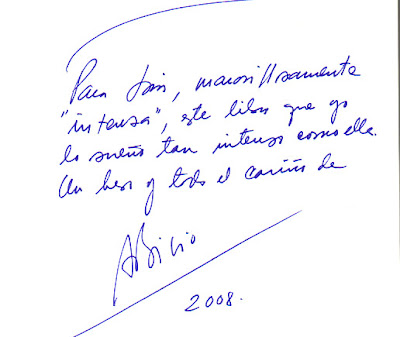 Para , maravillosamente
"intensa", este libro que yo
lo sueño tan intenso como ella.
Un beso y todo el cariño de

2008.